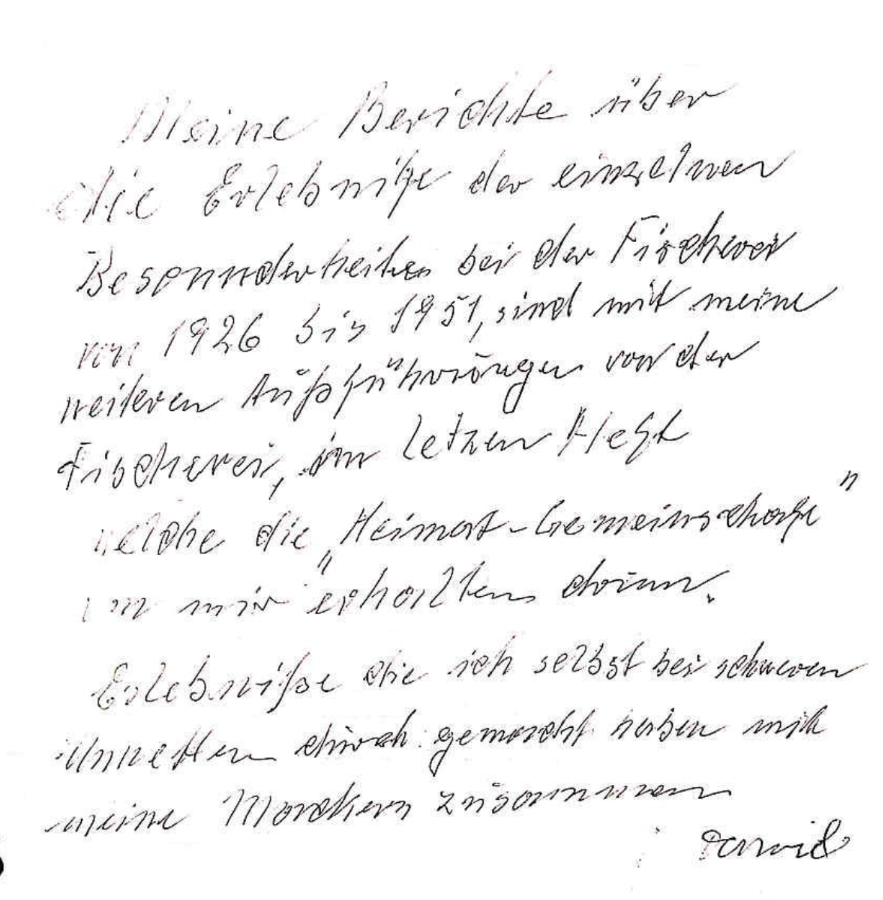 Meine Berichte über
die Erlebniße der einzelnen
Besonnderheiten bei der Fischerei
von 1926 bis 1951, sind mit meine
weiteren Außführungen von der
Fischerei, im letzen Heft
welche die „Heimat-Gemeinschaft"
von mir erhalten
Erlebniße die ich selbst bei schweren
Unwettern durch gemacht haben mit
meine zusammen